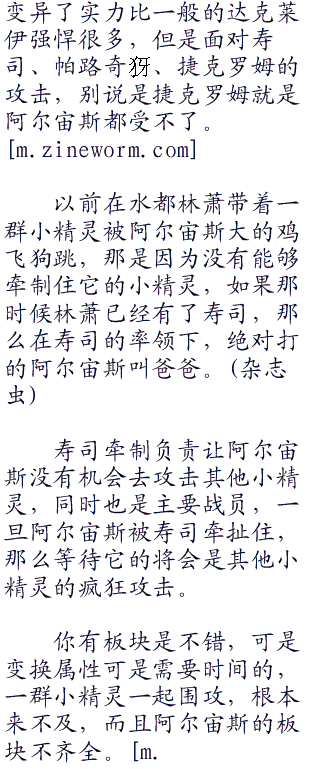 变异了实力比一般的达克莱
伊强悍很多，但是面对寿
司、帕路奇犽、捷克罗姆的
攻击，别说是捷克罗姆就是
阿尔宙斯都受不了。
[m.zineworm.com]
以前在水都林萧带着一
群小精灵被阿尔宙斯大的鸡
飞狗跳，那是因为没有能够
牵制住它的小精灵，如果那
时候林萧已经有了寿司，那
么在寿司的率领下，绝对打
的阿尔宙斯叫爸爸。(杂志
虫)
寿司牵制负责让阿尔宙
斯没有机会去攻击其他小精
灵，同时也是主要战员，一
旦阿尔宙斯被寿司牵扯住，
那么等待它的将会是其他小
精灵的疯狂攻击。
你有板块是不错，可是
变换属性可是需要时间的，
一群小精灵一起围攻，根本
来不及，而且阿尔宙斯的板
块不齐全。[m.